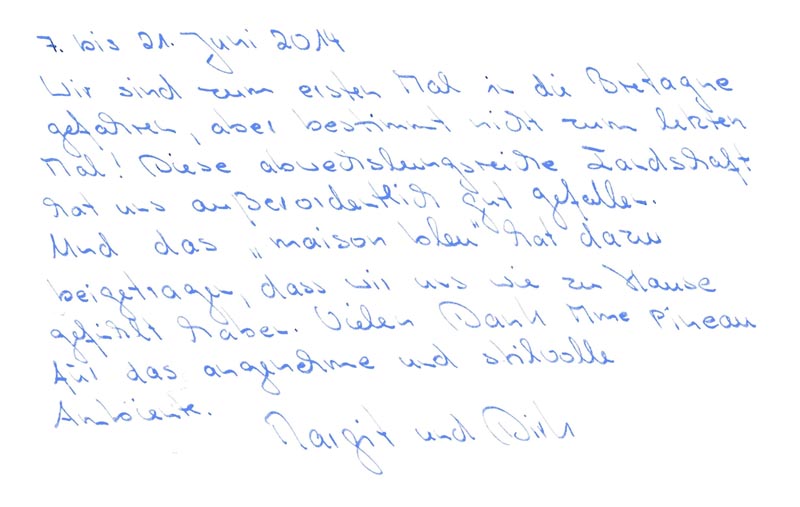 7. bis 21. Juni 2014
Wir sind zum ersten Mal in die Bretagne
gefahren, aber bestimmt nicht zum letzten
Mal! Diese abwechslungsreiche Landschaft
hat uns außerordentlich gut gefallen.
Und das „maison bleu" hat dazu
beigetragen, dass wir uns wie zu Hause
gefühlt haben. Vielen Dank Mme Pineau
für das angenehme und stilvolle
Ambiente.
Margit und Dirk